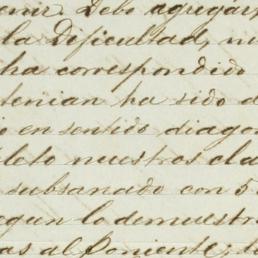 Debo agregar,
la Dificultad,
ha correspondido
tenian ha sido d
o en sentido diago
leto nuestros cla
subsanado con 5
egun lo demuestr
as al Poniente;